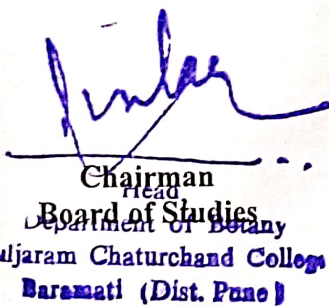 Chairman
Head
Board of Studies
Department of Botany
uljaram Chaturchand College
Baramati (Dist. Pune)